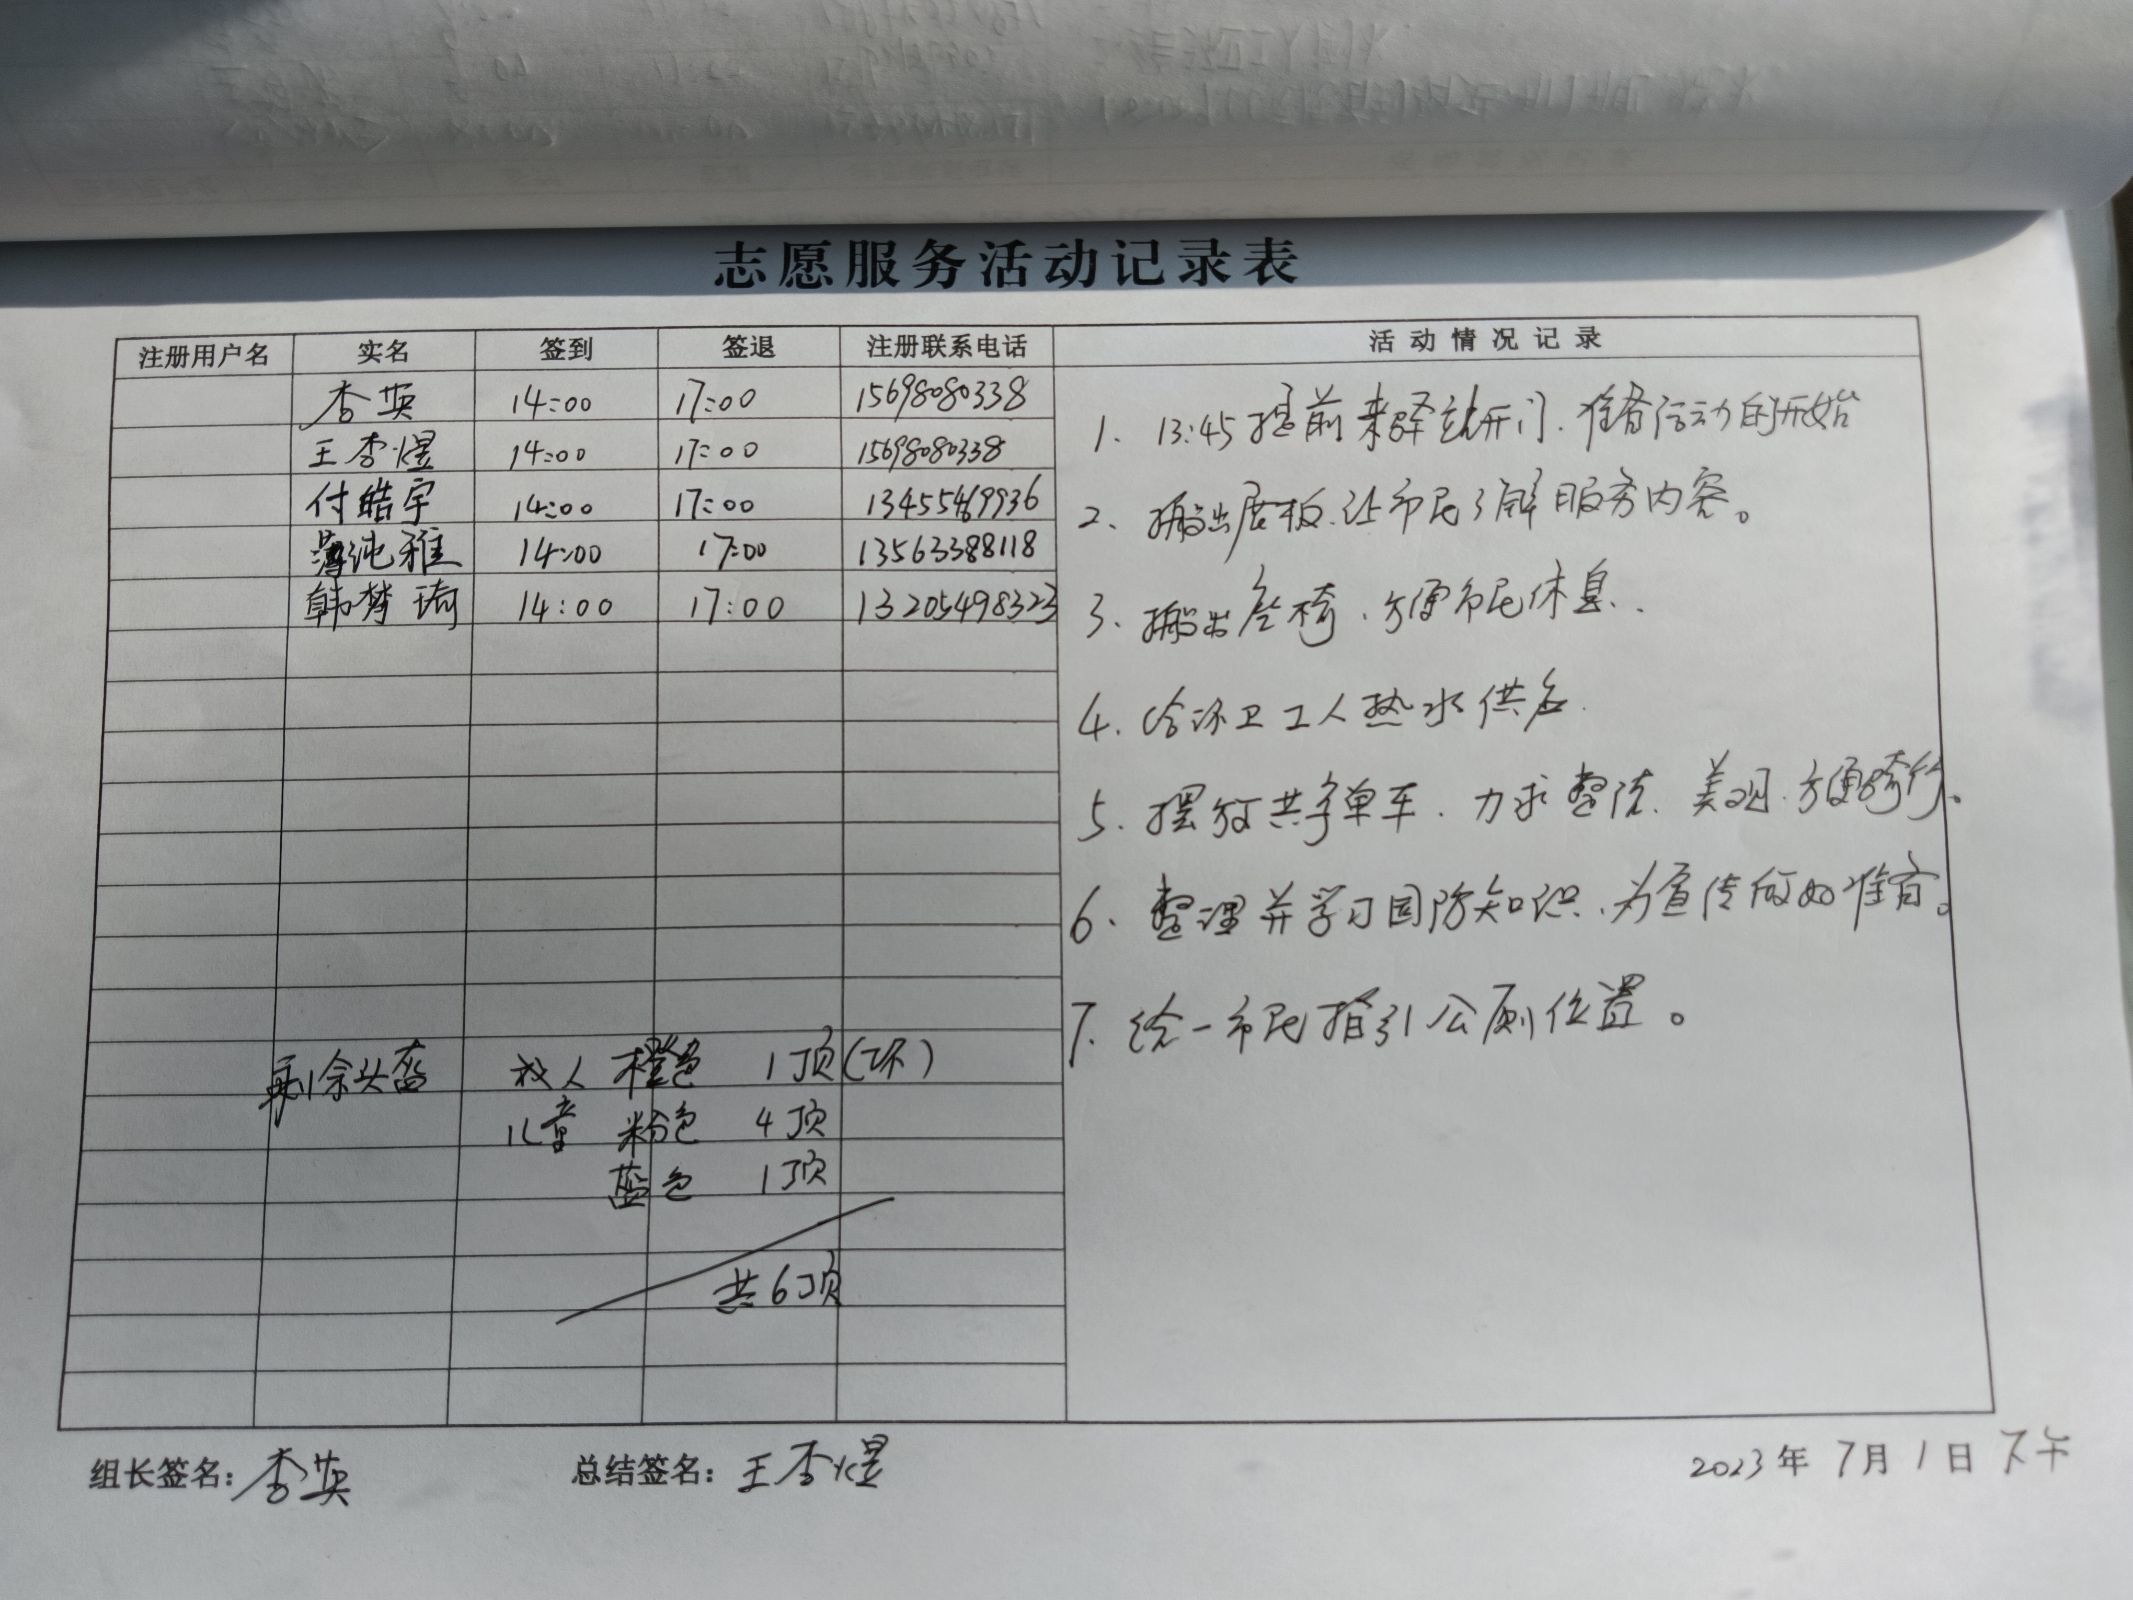 志愿服务活动记录表
注册用户名 实名 签到 签退 注册联系电话 活动情况记录
李英 14:00 17:00 15698080338
王李煜 14:00 17:00 15698080338
付皓宇 14:00 17:00 13455469936
薄沌雅 14:00 17:00 13563388118
韩梦琦 14:00 17:00 13205498323
1、13:45提前来驿站开门、准备活动的开始
2、搬出展板、让市民了解服务内容。
3、搬出座椅、方便市民休息.
4、给环卫工人热水供应.
5、摆放共享单车、力求整洁、美观、方便骑行。
6、整理并学习国防知识、为宣传做好准备。
7、给一市民指引公厕位置。
剩余头盔 成人 橙色 1顶(坏)
儿童 粉色 4顶
蓝色 1顶
共6顶
组长签名:李英 总结签名:王李煜 2023年7月1日下午